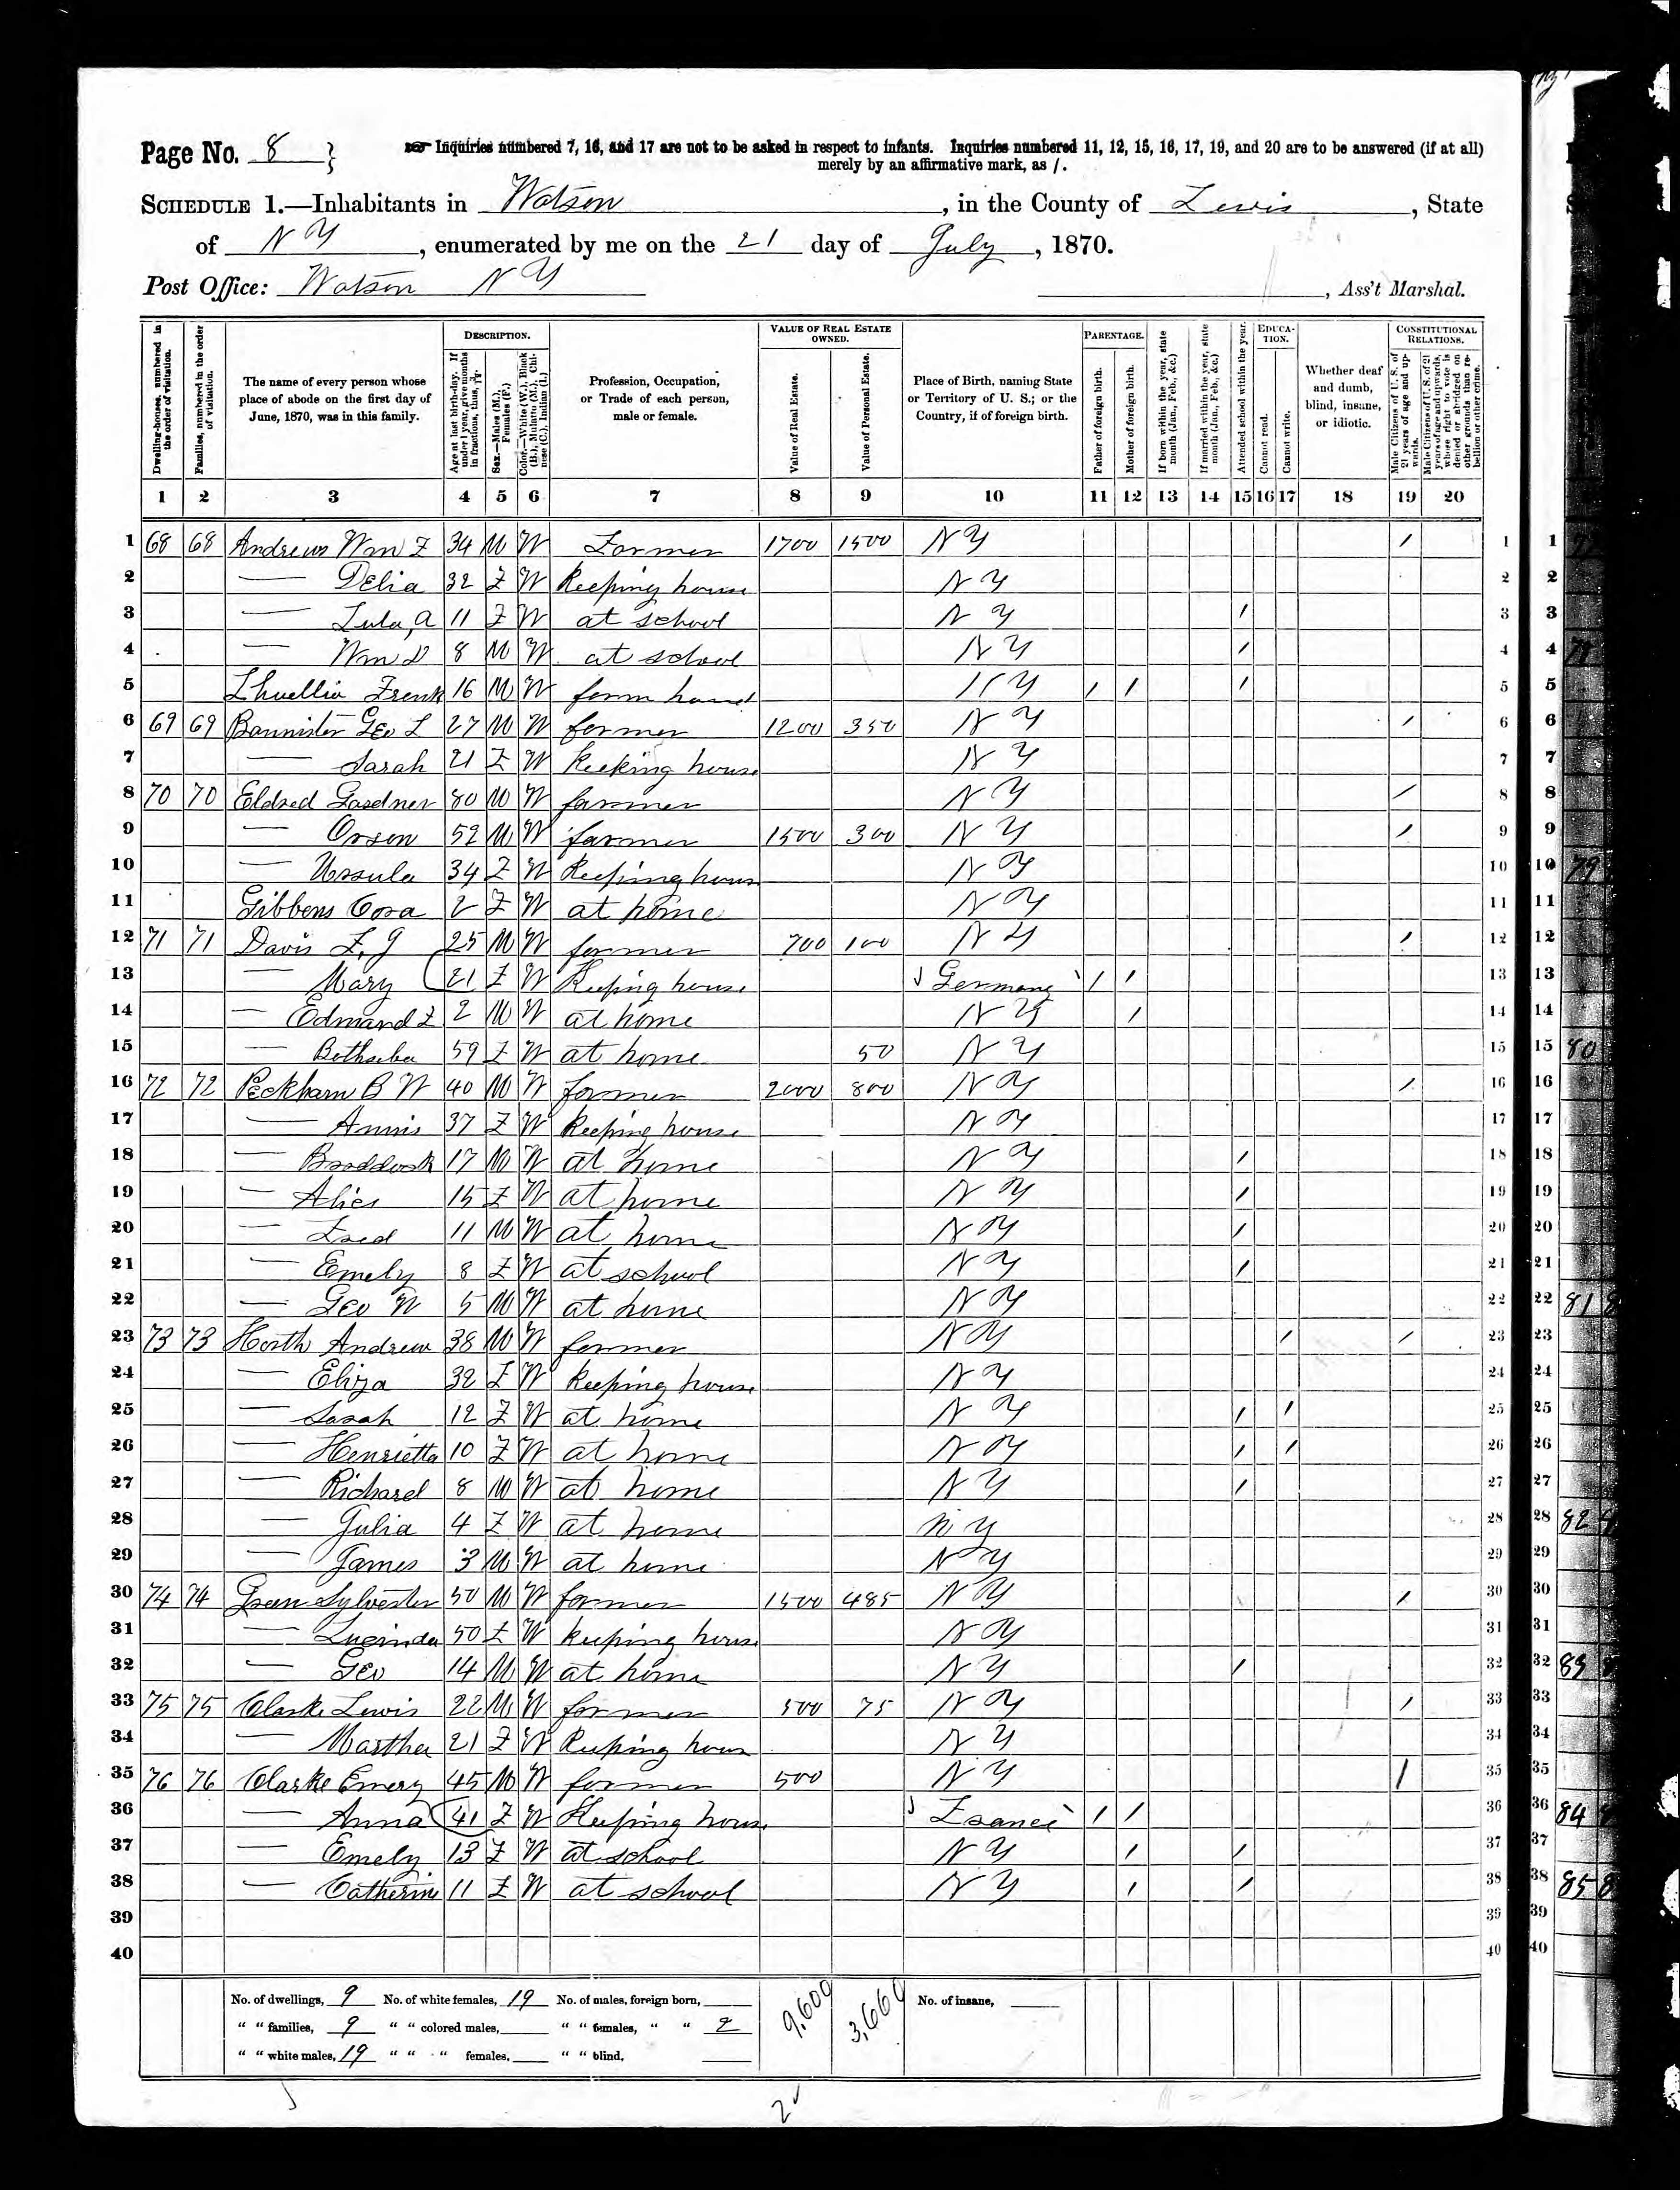 Page No. 8 }
Inquiries numbered 7, 16, and 17 are not to be asked in respect to infants. Inquiries numbered 11, 12, 15, 16, 17, 19, and 20 are to be answered (if at all)
merely by an affirmative mark, as /.
SCHEDULE 1.—Inhabitants in Watson, in the County of Lewis, State
of N Y, enumerated by me on the 21 day of July, 1870.
Post Office: Watson N Y , Ass't Marshal.
Dwelling-houses, numbered in the order of visitation.
Families, numbered in the order of visitation.
The name of every person whose place of abode on the first day of June, 1870, was in this family.
DESCRIPTION.
Age at last birth-day. If under 1 year, give months in fractions, thus, 3/12.
Sex.—Males (M.), Females (F.)
Color.—White (W.), Black (B.), Mulatto (M.), Chinese (C.), Indian (I.)
Profession, Occupation, or Trade of each person, male or female.
VALUE OF REAL ESTATE OWNED.
Value of Real Estate.
Value of Personal Estate.
Place of Birth, naming State or Territory of U. S.; or the Country, if of foreign birth.
PARENTAGE.
Father of foreign birth.
Mother of foreign birth.
If born within the year, state month (Jan., Feb., &c.)
If married within the year, state month (Jan., Feb., &c.)
Attended school within the year.
EDUCATION.
Cannot read.
Cannot write.
Whether deaf and dumb, blind, insane, or idiotic.
CONSTITUTIONAL RELATIONS.
Male Citizens of U. S. of 21 years of age and upwards.
Male Citizens of U. S. of 21 years of age and upwards, whose right to vote is denied or abridged on other grounds than rebellion or other crime.
1 2 3 4 5 6 7 8 9 10 11 12 13 14 15 16 17 18 19 20
1 68 68 Andrews Wm F 34 M W Farmer 1700 1500 N Y / 1 1
2 — Delia 32 F W Keeping house N Y 2 2
3 — Lula, A 11 F W at school N Y / 3 3
4 — Wm D 8 M W at school N Y / 4 4
5 Frenk 16 M W farm hand N Y / / / 5 5
6 69 69 Bannister Geo L 27 M W farmer 1200 350 N Y / 6 6
7 — Sarah 21 F W Keeking house N Y 7 7
8 70 70 Eldred Gardner 80 M W farmer N Y / 8 8
9 — Orson 52 M W farmer 1500 300 N Y / 9 9
10 — Ursula 34 F W Keeping house N Y 10 10 79
11 Gibbens Cora 2 F W at home N Y 11 11
12 71 71 Davis F, J 25 M W farmer 700 100 N Y / 12 12
13 — Mary 21 F W Keeping house Germany / / 13 13
14 — Edmand F 2 M W at home N Y / 14 14
15 — Bethseba 59 F W at home 50 N Y 15 15 80
16 72 72 Peckham B W 40 M W farmer 2000 800 N Y / 16 16
17 — Annis 37 F W Keeping house N Y 17 17
18 — Braddock 17 M W at home N Y / 18 18
19 — Alice 15 F W at home N Y / 19 19
20 — Fred 11 M W at home N Y / 20 20
21 — Emely 8 F W at school N Y / 21 21
22 — Geo W 5 M W at home N Y 22 22 81
23 73 73 Horth Andrew 38 M W farmer N Y / / 23 23
24 — Eliza 32 F W Keeping house N Y 24 24
25 — Sarah 12 F W at home N Y / / 25 25
26 — Henrietta 10 F W at home N Y / / 26 26
27 — Richard 8 M W at home N Y / 27 27
28 — Julia 4 F W at home N Y 28 28 82
29 — James 3 M W at home N Y 29 29
30 74 74 Green Sylvester 50 M W farmer 1500 485 N Y / 30 30
31 — Lucinda 50 F W Keeping house N Y 31 31
32 — Geo 14 M W at home N Y / 32 32 83
33 75 75 Clarke Lewis 22 M W farmer 500 75 N Y / 33 33
34 — Martha 21 F W Keeping house N Y 34 34
35 76 76 Clarke Emery 45 M W farmer 500 N Y / 35 35
36 — Anna 41 F W Keeping house France / / 36 36 84
37 — Emely 13 F W at school N Y / / 37 37
38 — Catherine 11 F W at school N Y / / 38 38 85
39 39 39
40 40 40
No. of dwellings, 9 No. of white females, 19 No. of males, foreign born, 9,600 3,660 No. of insane,
" " families, 9 " " colored males, " " females, " " 2
" " white males, 19 " " " females, " " blind,
2